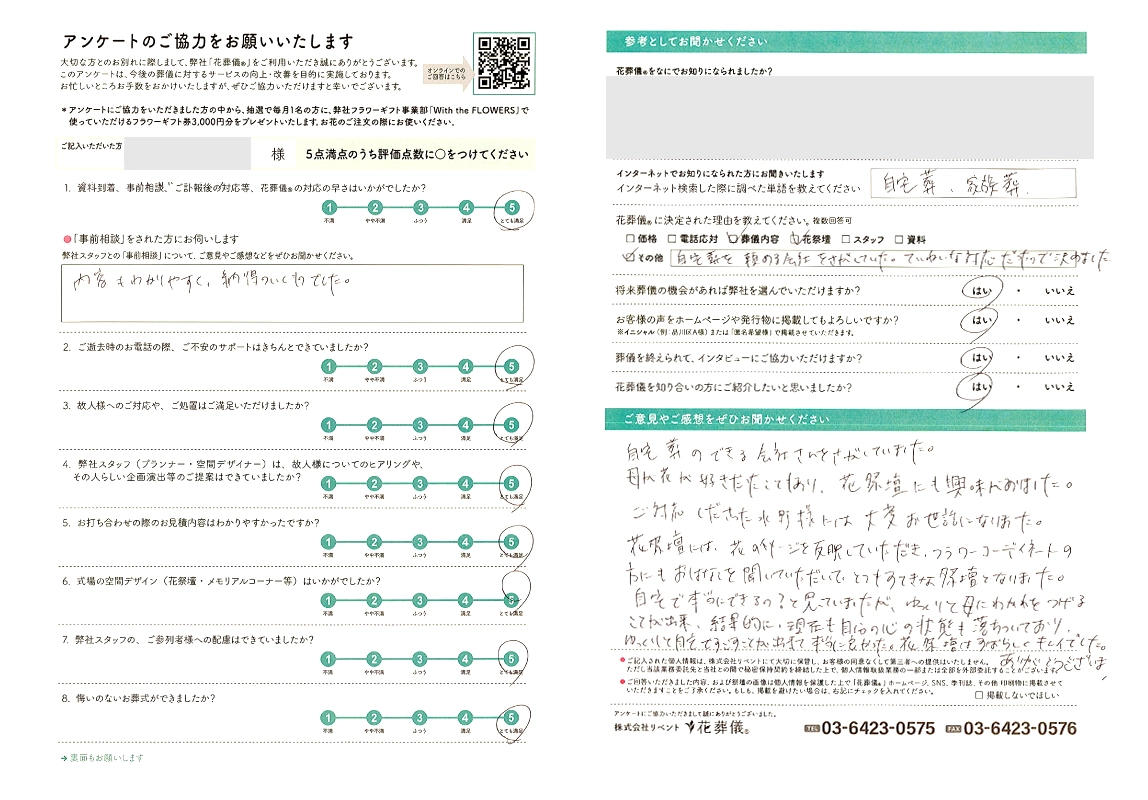 アンケートのご協力をお願いいたします
大切な方とのお別れに際しまして、弊社「花葬儀®」をご利用いただき誠にありがとうございます。
このアンケートは、今後の葬儀に対するサービスの向上・改善を目的に実施しております。
お忙しいところお手数をおかけいたしますが、ぜひご協力いただけますと幸いでございます。
オンラインでの
ご回答はこちら
＊アンケートにご協力をいただきました方の中から、抽選で毎月1名の方に、弊社フラワーギフト事業部「With the FLOWERS」で
使っていただけるフラワーギフト券3,000円分をプレゼントいたします。お花のご注文の際にお使いください。
ご記入いただいた方 様 5点満点のうち評価点数に○をつけてください
1. 資料到着、事前相談、ご訃報後の対応等、花葬儀®の対応の早さはいかがでしたか？
1 2 3 4 5
不満 やや不満 ふつう 満足 とても満足
●「事前相談」をされた方にお伺いします
弊社スタッフとの「事前相談」について、ご意見やご感想などをぜひお聞かせください。
内容もわかりやすく、納得のいくものでした。
2. ご逝去時のお電話の際、ご不安のサポートはきちんとできていましたか？
1 2 3 4 5
不満 やや不満 ふつう 満足 とても満足
3. 故人様へのご対応や、ご処置はご満足いただけましたか？
1 2 3 4 5
不満 やや不満 ふつう 満足 とても満足
4. 弊社スタッフ（プランナー・空間デザイナー）は、故人様についてのヒアリングや、
その人らしい企画演出等のご提案はできていましたか？
1 2 3 4 5
不満 やや不満 ふつう 満足 とても満足
5. お打ち合わせの際のお見積内容はわかりやすかったですか？
1 2 3 4 5
不満 やや不満 ふつう 満足 とても満足
6. 式場の空間デザイン（花祭壇・メモリアルコーナー等）はいかがでしたか？
1 2 3 4 5
不満 やや不満 ふつう 満足 とても満足
7. 弊社スタッフの、ご参列者様への配慮はできていましたか？
1 2 3 4 5
不満 やや不満 ふつう 満足 とても満足
8. 悔いのないお葬式ができましたか？
1 2 3 4 5
不満 やや不満 ふつう 満足 とても満足
→ 裏面もお願いします
参考としてお聞かせください
花葬儀®をなにでお知りになられましたか？
インターネットでお知りになられた方にお聞きいたします
インターネット検索した際に調べた単語を教えてください
自宅葬、家族葬
花葬儀®に決定された理由を教えてください。複数回答可
□価格 □電話応対 ☑葬儀内容 ☑花祭壇 □スタッフ □資料
☑その他 自宅葬を頼める会社をさがしていた。ていねいな対応だったので決めました
将来葬儀の機会があれば弊社を選んでいただけますか？ はい ・ いいえ
お客様の声をホームページや発行物に掲載してもよろしいですか？ はい ・ いいえ
※イニシャル（例：品川区A様）または「匿名希望様」で掲載させていただきます。
葬儀を終えられて、インタビューにご協力いただけますか？ はい ・ いいえ
花葬儀を知り合いの方にご紹介したいと思いましたか？ はい ・ いいえ
ご意見やご感想をぜひお聞かせください
自宅葬のできる会社さんをさがしていました。
母が花が好きだったこともあり、花祭壇にも興味がありました。
ご対応くださった水野様には大変お世話になりました。
花祭壇には、花のイメージを反映していただき、フラワーコーディネートの
方にもおはなしを聞いていただいて、とてもすてきな祭壇となりました。
自宅で本当にできるの？と思っていましたが、ゆっくりと母にわかれをつげる
ことが出来、結果的に、現在も自分の心の状態も落ちついており、
ゆっくりと自宅ですごすことが出来て本当に良かった。花祭壇はすばらしくキレイでした。
ありがとうございました
●ご記入された個人情報は、株式会社リベントにて大切に保管し、お客様の同意なくして第三者への提供はいたしません。
ただし当該業務委託先と当社との間で秘密保持契約を締結した上で、個人情報取扱業務の一部または全部を外部委託することがございます。
●ご回答いただきました内容、および祭壇の画像は個人情報を保護した上で「花葬儀®」ホームページ、SNS、季刊誌、その他印刷物に掲載させて
いただきますことをご了承ください。もしも、掲載を避けたい場合は、右記にチェックを入れてください。
□ 掲載しないでほしい
アンケートにご協力いただきまして誠にありがとうございました。
株式会社リベント 花葬儀® TEL 03-6423-0575 FAX 03-6423-0576